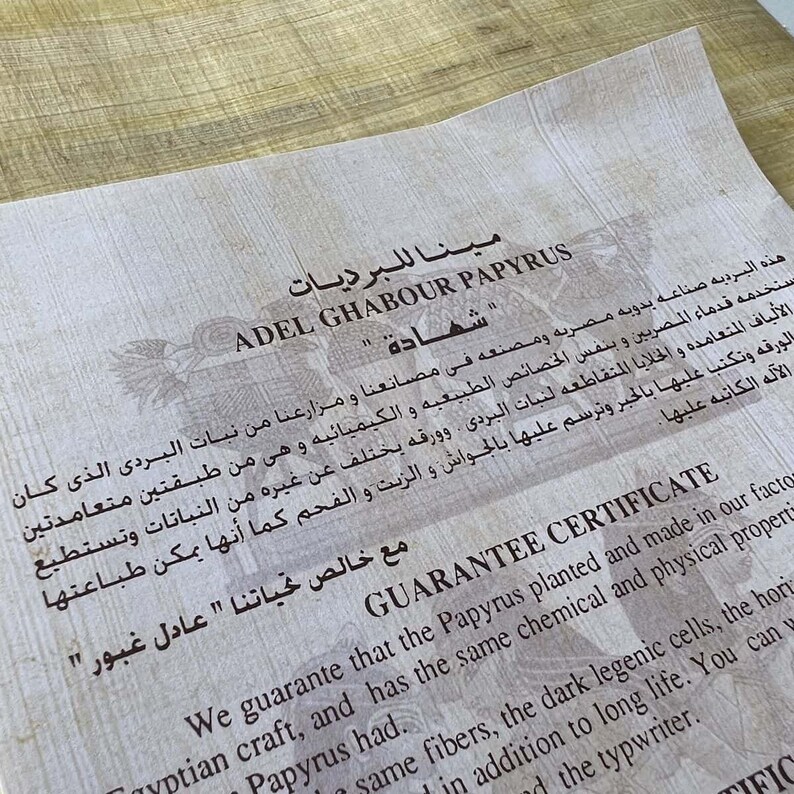 مينا للبرديات
ADEL GHABOUR PAPYRUS
" شهادة "
هذه البرديه صناعه يدويه مصريه ومصنعه فى مصانعنا و مزارعنا من نبات البردى الذى كان
ستخدمه قدماء المصريين و بنفس الخصائص الطبيعيه و الكيميائيه و هى من طبقتين متعامدتين
الألياف المتعامده و الخلايا المتقاطعه لنبات البردى . وورقه يختلف عن غيره من النباتات وتستطيع
الورقه وتكتب عليها بالحبر وترسم عليها بالجواش و الزيت و الفحم كما أنها يمكن طباعتها
الآله الكاتبه عليها.
مع خالص تحياتنا " عادل غبور "
GUARANTEE CERTIFICATE
We guarante that the Papyrus planted and made in our factor
Egyptian craft, and has the same chemical and physical properti
Papyrus had.
same fibers, the dark legenic cells, the hori
in addition to long life. You can w
the typwriter.
TIFIC